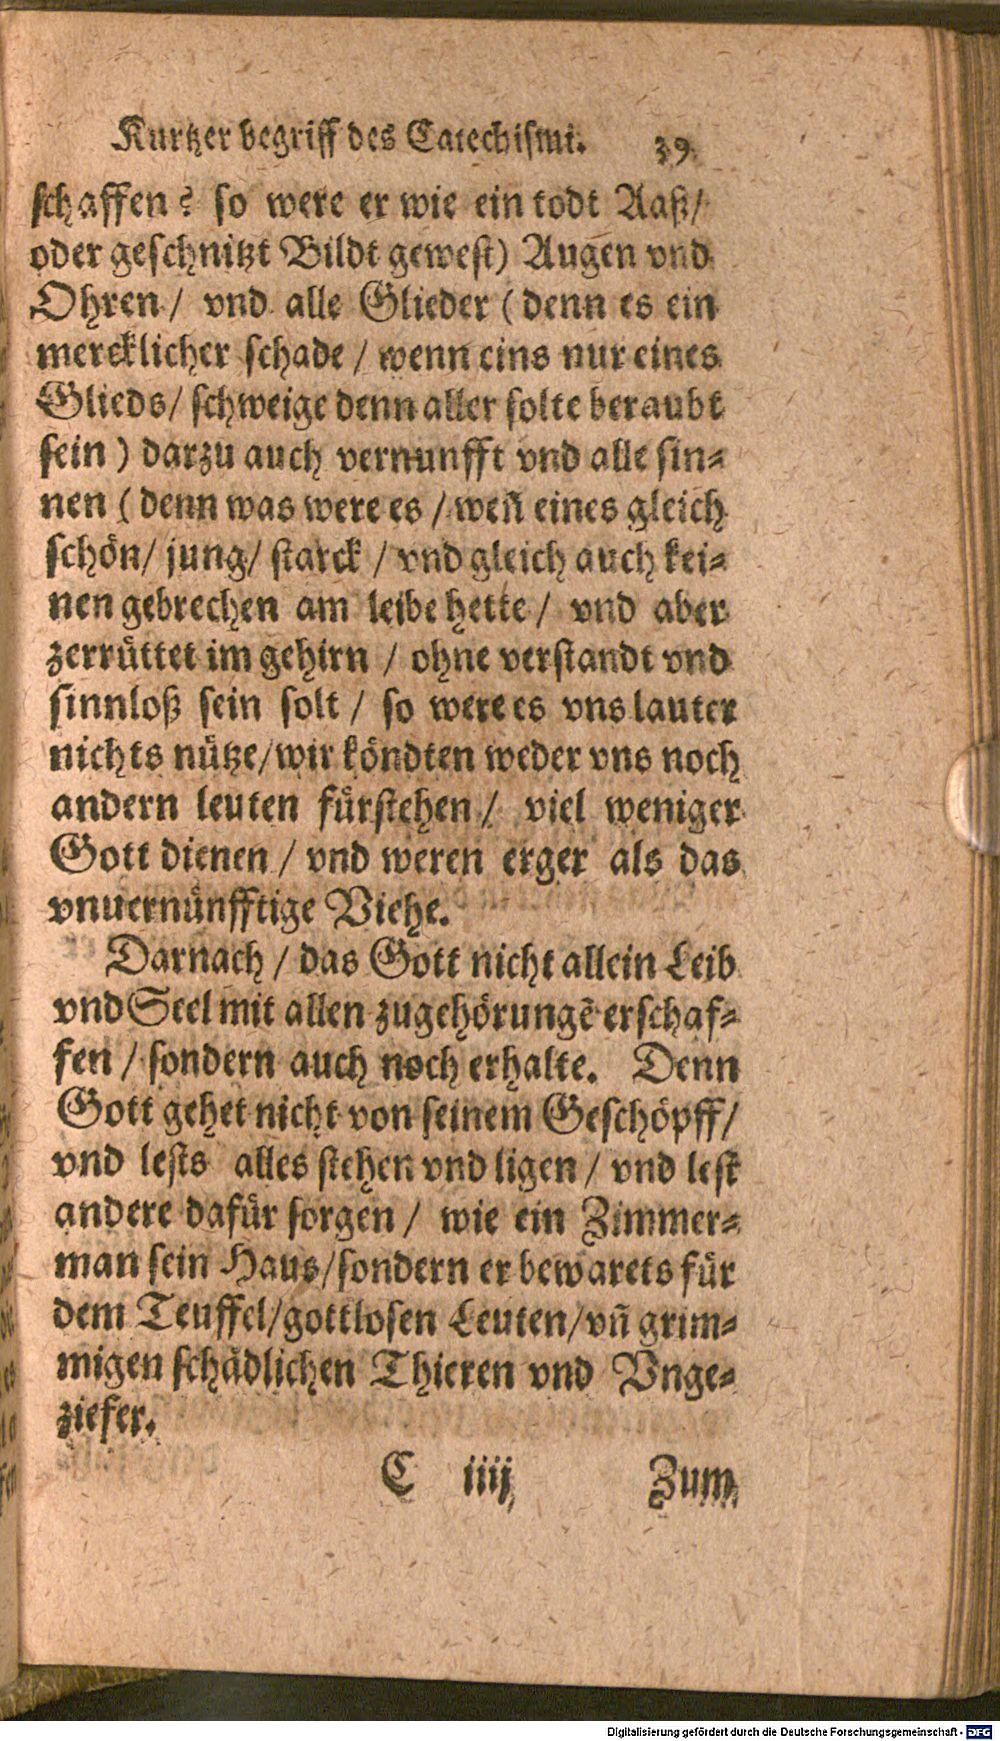 Kurtzer begriff des Catechismi. 39
schaffen? so were er wie ein todt Aaß/
oder geschnitzt Bildt gewest) Augen vnd
Ohren / vnd alle Glieder ( denn es ein
mercklicher schade / wenn eins nur eines
Glieds/ schweige denn aller solte beraubt
sein ) darzu auch vernunfft vnd alle sin⸗
nen ( denn was were es / weñ eines gleich
schön/ jung/ starck / vnd gleich auch kei⸗
nen gebrechen am leibe hette / vnd aber
zerrüttet im gehirn / ohne verstandt vnd
sinnloß sein solt / so were es vns lauter
nichts nütze/wir köndten weder vns noch
andern leuten fürstehen / viel weniger
Gott dienen / vnd weren erger als das
vnuernünfftige Viehe.
Darnach / das Gott nicht allein Leib
vnd Seel mit allen zugehörungẽ erschaf⸗
fen / sondern auch noch erhalte. Denn
Gott gehet nicht von seinem Geschöpff/
vnd lests alles stehen vnd ligen / vnd lest
andere dafür sorgen / wie ein Zimmer⸗
man sein Haus/sondern er bewarets für
dem Teuffel/gottlosen Leuten/vñ grim⸗
migen schädlichen Thieren vnd Vnge⸗
ziefer.
C iiij Zum
Digitalisierung gefördert durch die Deutsche Forschungsgemeinschaft - DFG